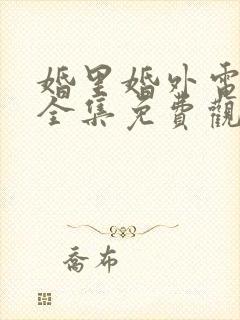 婚里婚外電
全集免費觀
喬布